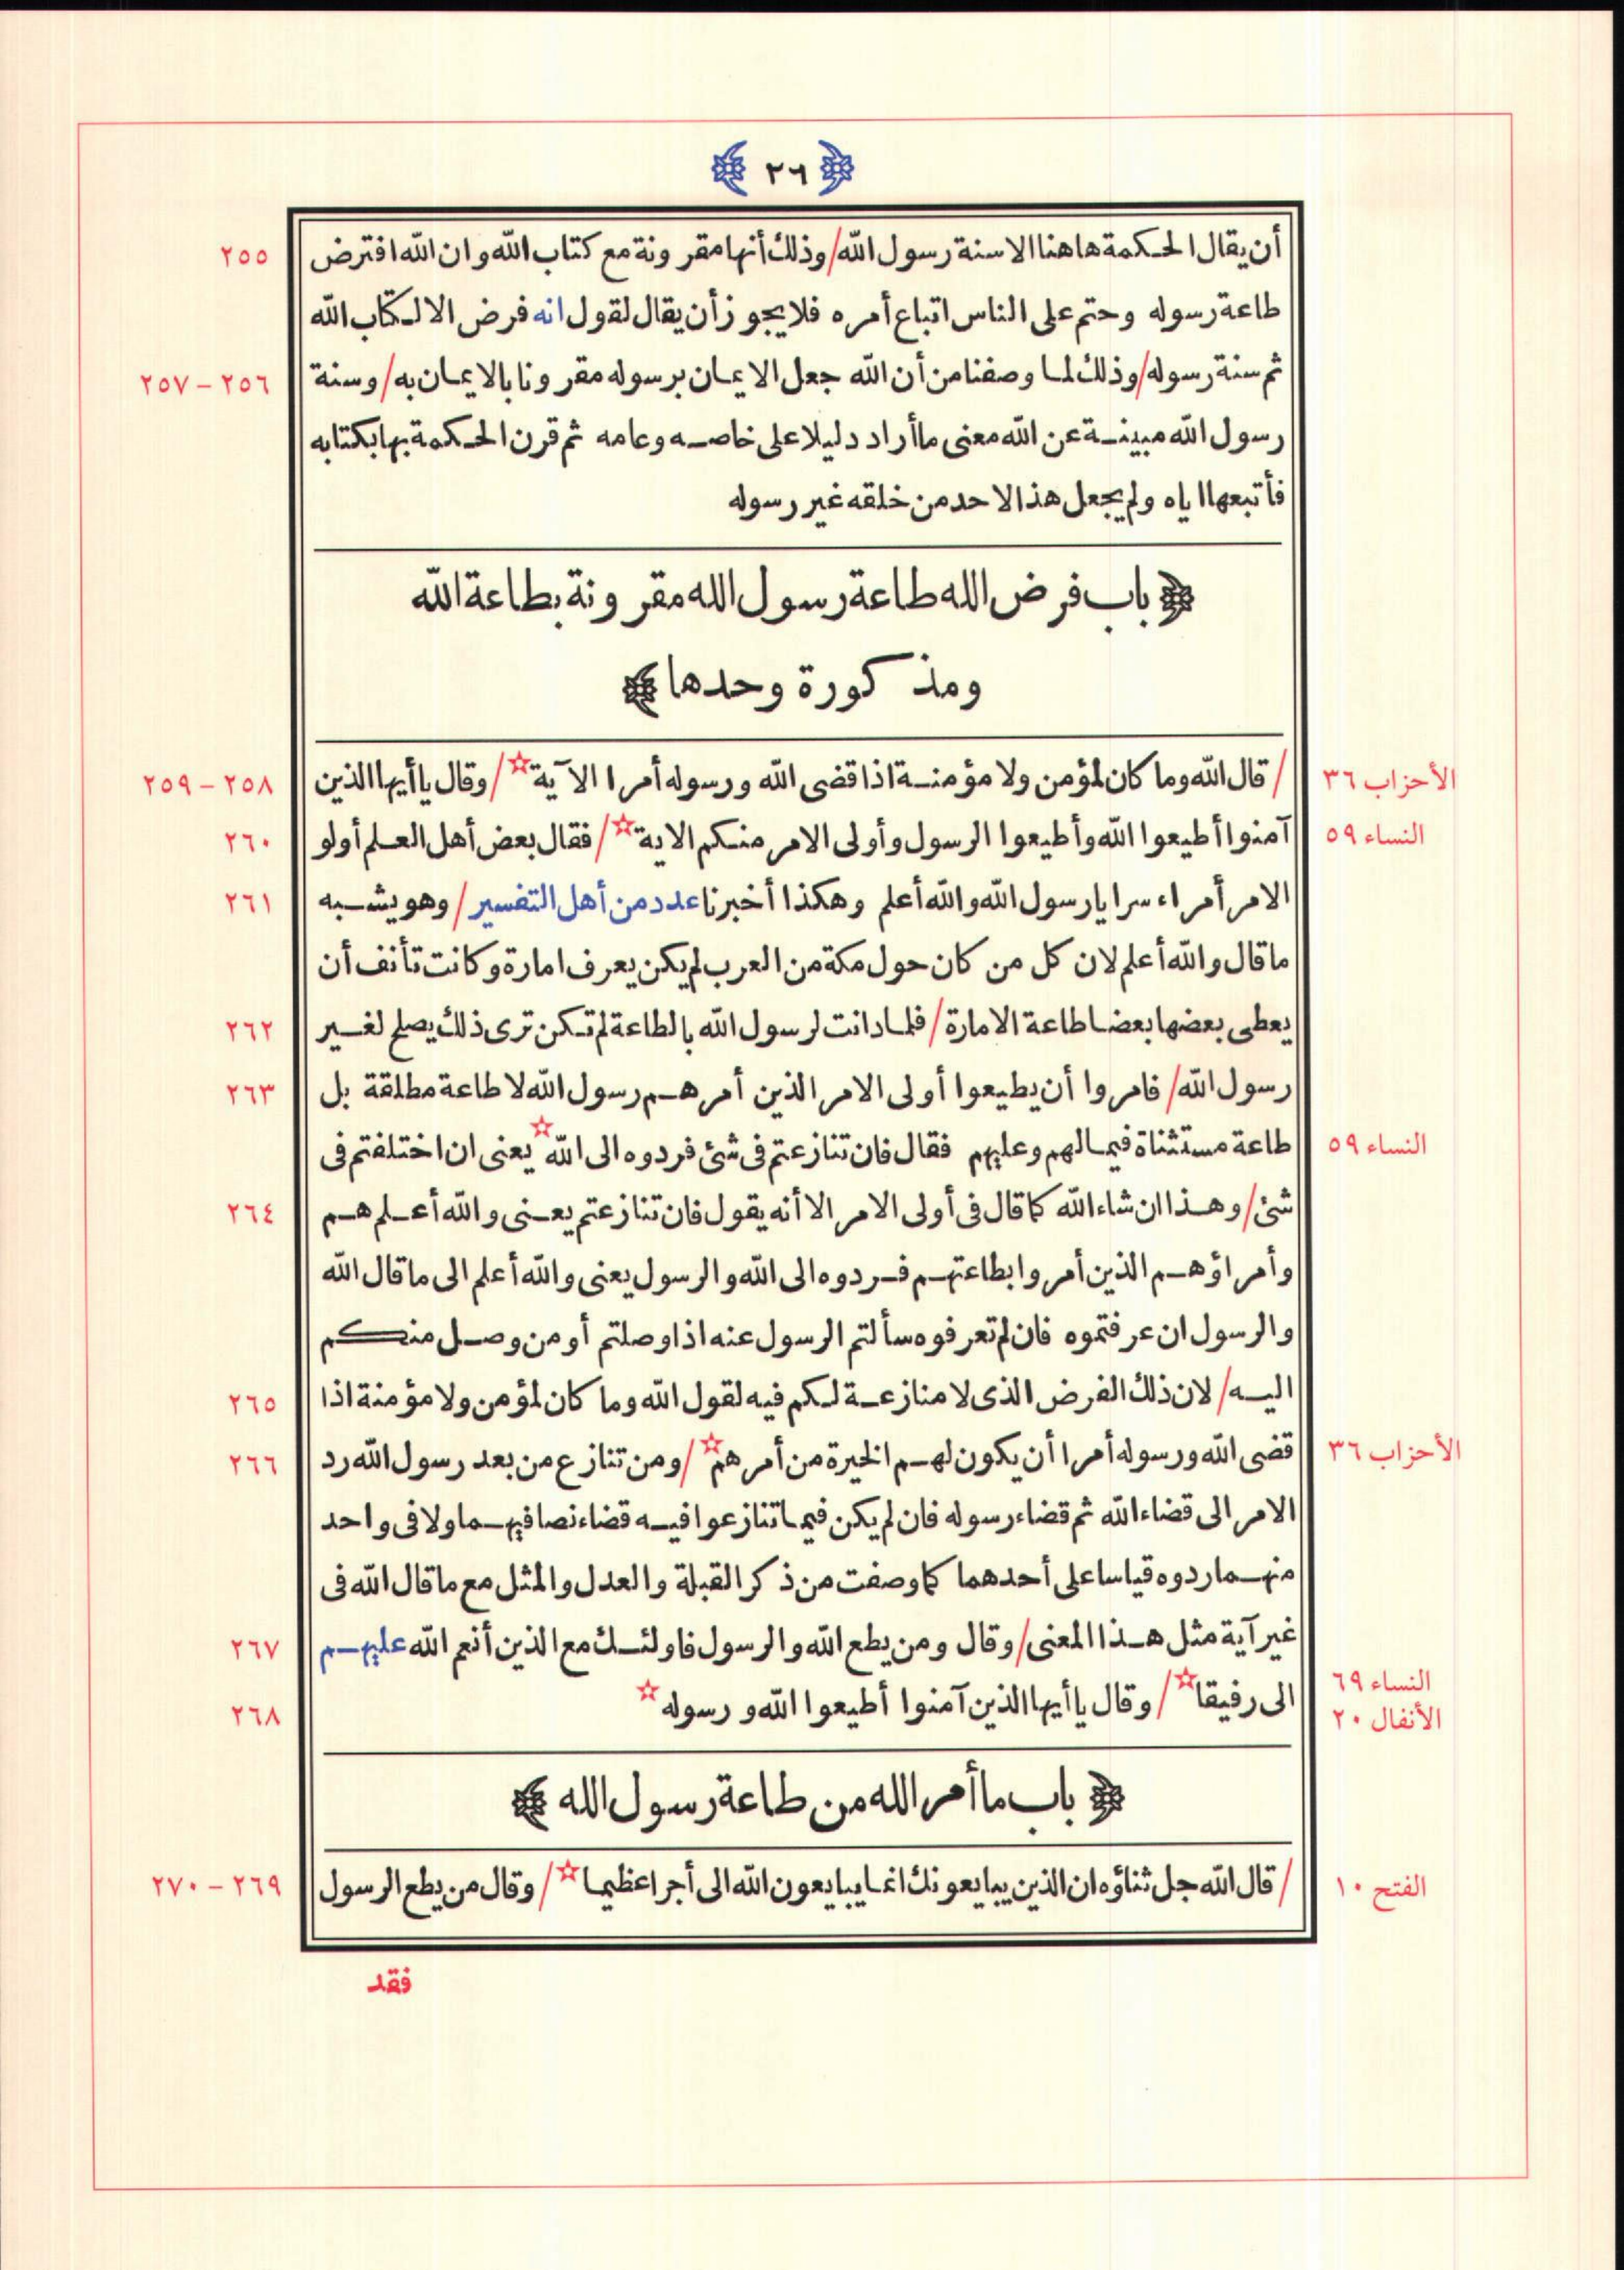 ٢٦
أن يقال الحكمة هاهنا الا سنة رسول الله / وذلك أنها مقرونة مع كتاب الله وان الله افترض ٢٥٥
طاعة رسوله وحتم على الناس اتباع أمره فلا يجوز أن يقال لقول انه فرض الا لكتاب الله
ثم سنة رسوله / وذلك لما وصفنا من أن الله جعل الايمان برسوله مقرونا بالايمان به / وسنة ٢٥٦ - ٢٥٧
رسول الله مبينة عن الله معنى ما أراد دليلا على خاصه وعامه ثم قرن الحكمة بها بكتابه
فأتبعها اياه ولم يجعل هذا لاحد من خلقه غير رسوله
باب فرض الله طاعة رسول الله مقرونة بطاعة الله
ومذكورة وحدها
الأحزاب ٣٦ / قال الله وما كان لمؤمن ولا مؤمنة اذا قضى الله ورسوله أمرا الآية☆ / وقال يا أيها الذين ٢٥٨ - ٢٥٩
النساء ٥٩ آمنوا أطيعوا الله وأطيعوا الرسول وأولى الامر منكم الاية☆ / فقال بعض أهل العلم أولو ٢٦٠
الامر أمراء سرايا رسول الله والله أعلم وهكذا أخبرنا عدد من أهل التفسير / وهو يشبه ٢٦١
ما قال والله أعلم لان كل من كان حول مكة من العرب لم يكن يعرف امارة وكانت تأنف أن
يعطى بعضها بعضا طاعة الامارة / فلما دانت لرسول الله بالطاعة لم تكن ترى ذلك يصلح لغير ٢٦٢
رسول الله / فامروا أن يطيعوا أولى الامر الذين أمرهم رسول الله لا طاعة مطلقة بل ٢٦٣
النساء ٥٩ طاعة مستثناة فيما لهم وعليهم فقال فان تنازعتم فى شئ فردوه الى الله☆ يعنى ان اختلفتم فى
شئ / وهذا ان شاء الله كما قال فى أولى الامر الا أنه يقول فان تنازعتم يعنى والله أعلم هم ٢٦٤
وأمراؤهم الذين أمروا بطاعتهم فردوه الى الله والرسول يعنى والله أعلم الى ما قال الله
والرسول ان عرفتموه فان لم تعرفوه سألتم الرسول عنه اذا وصلتم أو من وصل منكم
اليه / لان ذلك الفرض الذى لا منازعة لكم فيه لقول الله وما كان لمؤمن ولا مؤمنة اذا ٢٦٥
الأحزاب ٣٦ قضى الله ورسوله أمرا أن يكون لهم الخيرة من أمرهم☆ / ومن تنازع من بعد رسول الله رد ٢٦٦
الامر الى قضاء الله ثم قضاء رسوله فان لم يكن فيما تنازعوا فيه قضاء نصا فيهما ولا فى واحد
منهما ردوه قياسا على أحدهما كما وصفت من ذكر القبلة والعدل والمثل مع ما قال الله فى
غير آية مثل هذا المعنى / وقال ومن يطع الله والرسول فاولئك مع الذين أنعم الله عليهم ٢٦٧
النساء ٦٩ الى رفيقا☆ / وقال يا أيها الذين آمنوا أطيعوا الله ورسوله☆ ٢٦٨
الأنفال ٢٠
باب ما أمر الله من طاعة رسول الله
الفتح ١٠ / قال الله جل ثناؤه ان الذين يبايعونك انما يبايعون الله الى أجرا عظيما☆ / وقال من يطع الرسول ٢٦٩ - ٢٧٠
فقد